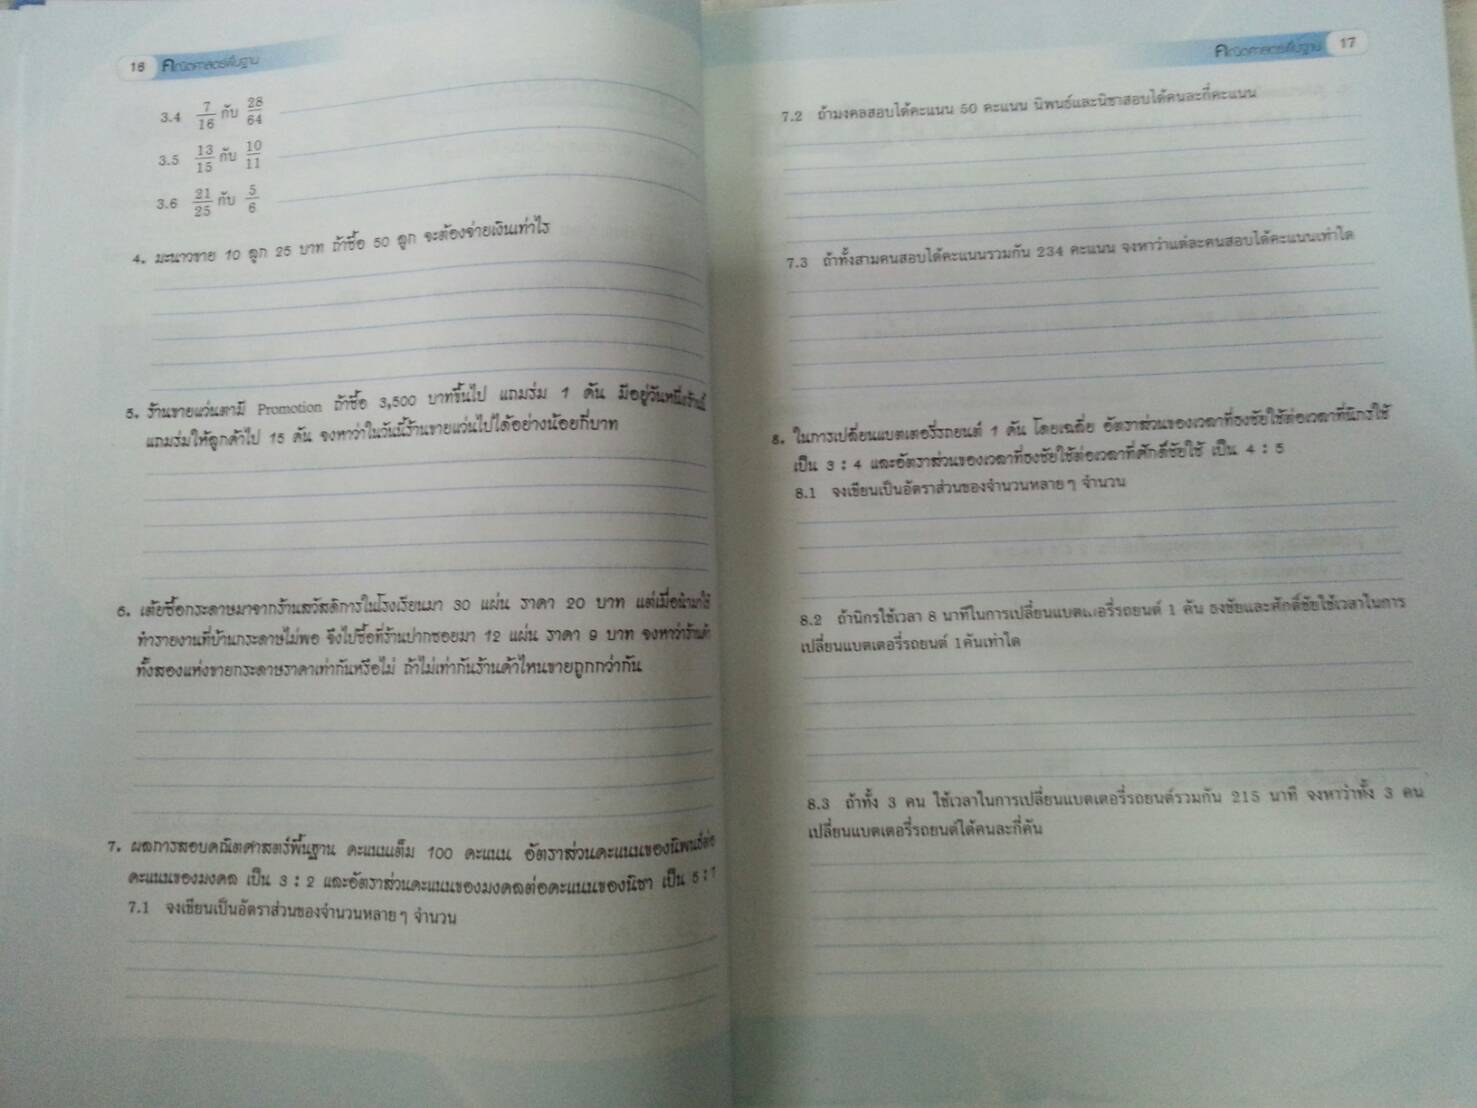 16 คณิตศาสตร์พื้นฐาน
3.4 7/16 กับ 28/64
3.5 13/15 กับ 10/11
3.6 21/25 กับ 5/6
4. มะนาวขาย 10 ลูก 25 บาท ถ้าซื้อ 50 ลูก จะต้องจ่ายเงินเท่าไร
5. ร้านขายแว่นตามี Promotion ถ้าซื้อ 3,500 บาทขึ้นไป แถมร่ม 1 คัน มีอยู่วันหนึ่งร้านนี้
แถมร่มให้ลูกค้าไป 15 คัน จงหาว่าในวันนี้ร้านขายแว่นไปได้อย่างน้อยกี่บาท
6. เต้ยซื้อกระดาษมาจากร้านสวัสดิการในโรงเรียนมา 30 แผ่น ราคา 20 บาท แต่เมื่อนำมาใช้
ทำรายงานที่บ้านกระดาษไม่พอ จึงไปซื้อที่ร้านปากซอยมา 12 แผ่น ราคา 9 บาท จงหาว่าร้านค้า
ทั้งสองแห่งขายกระดาษราคาเท่ากันหรือไม่ ถ้าไม่เท่ากันร้านค้าไหนขายถูกกว่ากัน
7. ผลการสอบคณิตศาสตร์พื้นฐาน คะแนนเต็ม 100 คะแนน อัตราส่วนคะแนนของนิพนธ์ต่อ
คะแนนของมงคล เป็น 3 : 2 และอัตราส่วนคะแนนของมงคลต่อคะแนนของนิชา เป็น 5 : 7
7.1 จงเขียนเป็นอัตราส่วนของจำนวนหลายๆ จำนวน
คณิตศาสตร์พื้นฐาน 17
7.2 ถ้ามงคลสอบได้คะแนน 50 คะแนน นิพนธ์และนิชาสอบได้คนละกี่คะแนน
7.3 ถ้าทั้งสามคนสอบได้คะแนนรวมกัน 234 คะแนน จงหาว่าแต่ละคนสอบได้คะแนนเท่าใด
8. ในการเปลี่ยนแบตเตอรี่รถยนต์ 1 คัน โดยเฉลี่ย อัตราส่วนของเวลาที่ธงชัยใช้ต่อเวลาที่นิกรใช้
เป็น 3 : 4 และอัตราส่วนของเวลาที่ธงชัยใช้ต่อเวลาที่ศักดิ์ชัยใช้ เป็น 4 : 5
8.1 จงเขียนเป็นอัตราส่วนของจำนวนหลายๆ จำนวน
8.2 ถ้านิกรใช้เวลา 8 นาทีในการเปลี่ยนแบตเตอรี่รถยนต์ 1 คัน ธงชัยและศักดิ์ชัยใช้เวลาในการ
เปลี่ยนแบตเตอรี่รถยนต์ 1คันเท่าใด
8.3 ถ้าทั้ง 3 คน ใช้เวลาในการเปลี่ยนแบตเตอรี่รถยนต์รวมกัน 215 นาที จงหาว่าทั้ง 3 คน
เปลี่ยนแบตเตอรี่รถยนต์ได้คนละกี่คัน